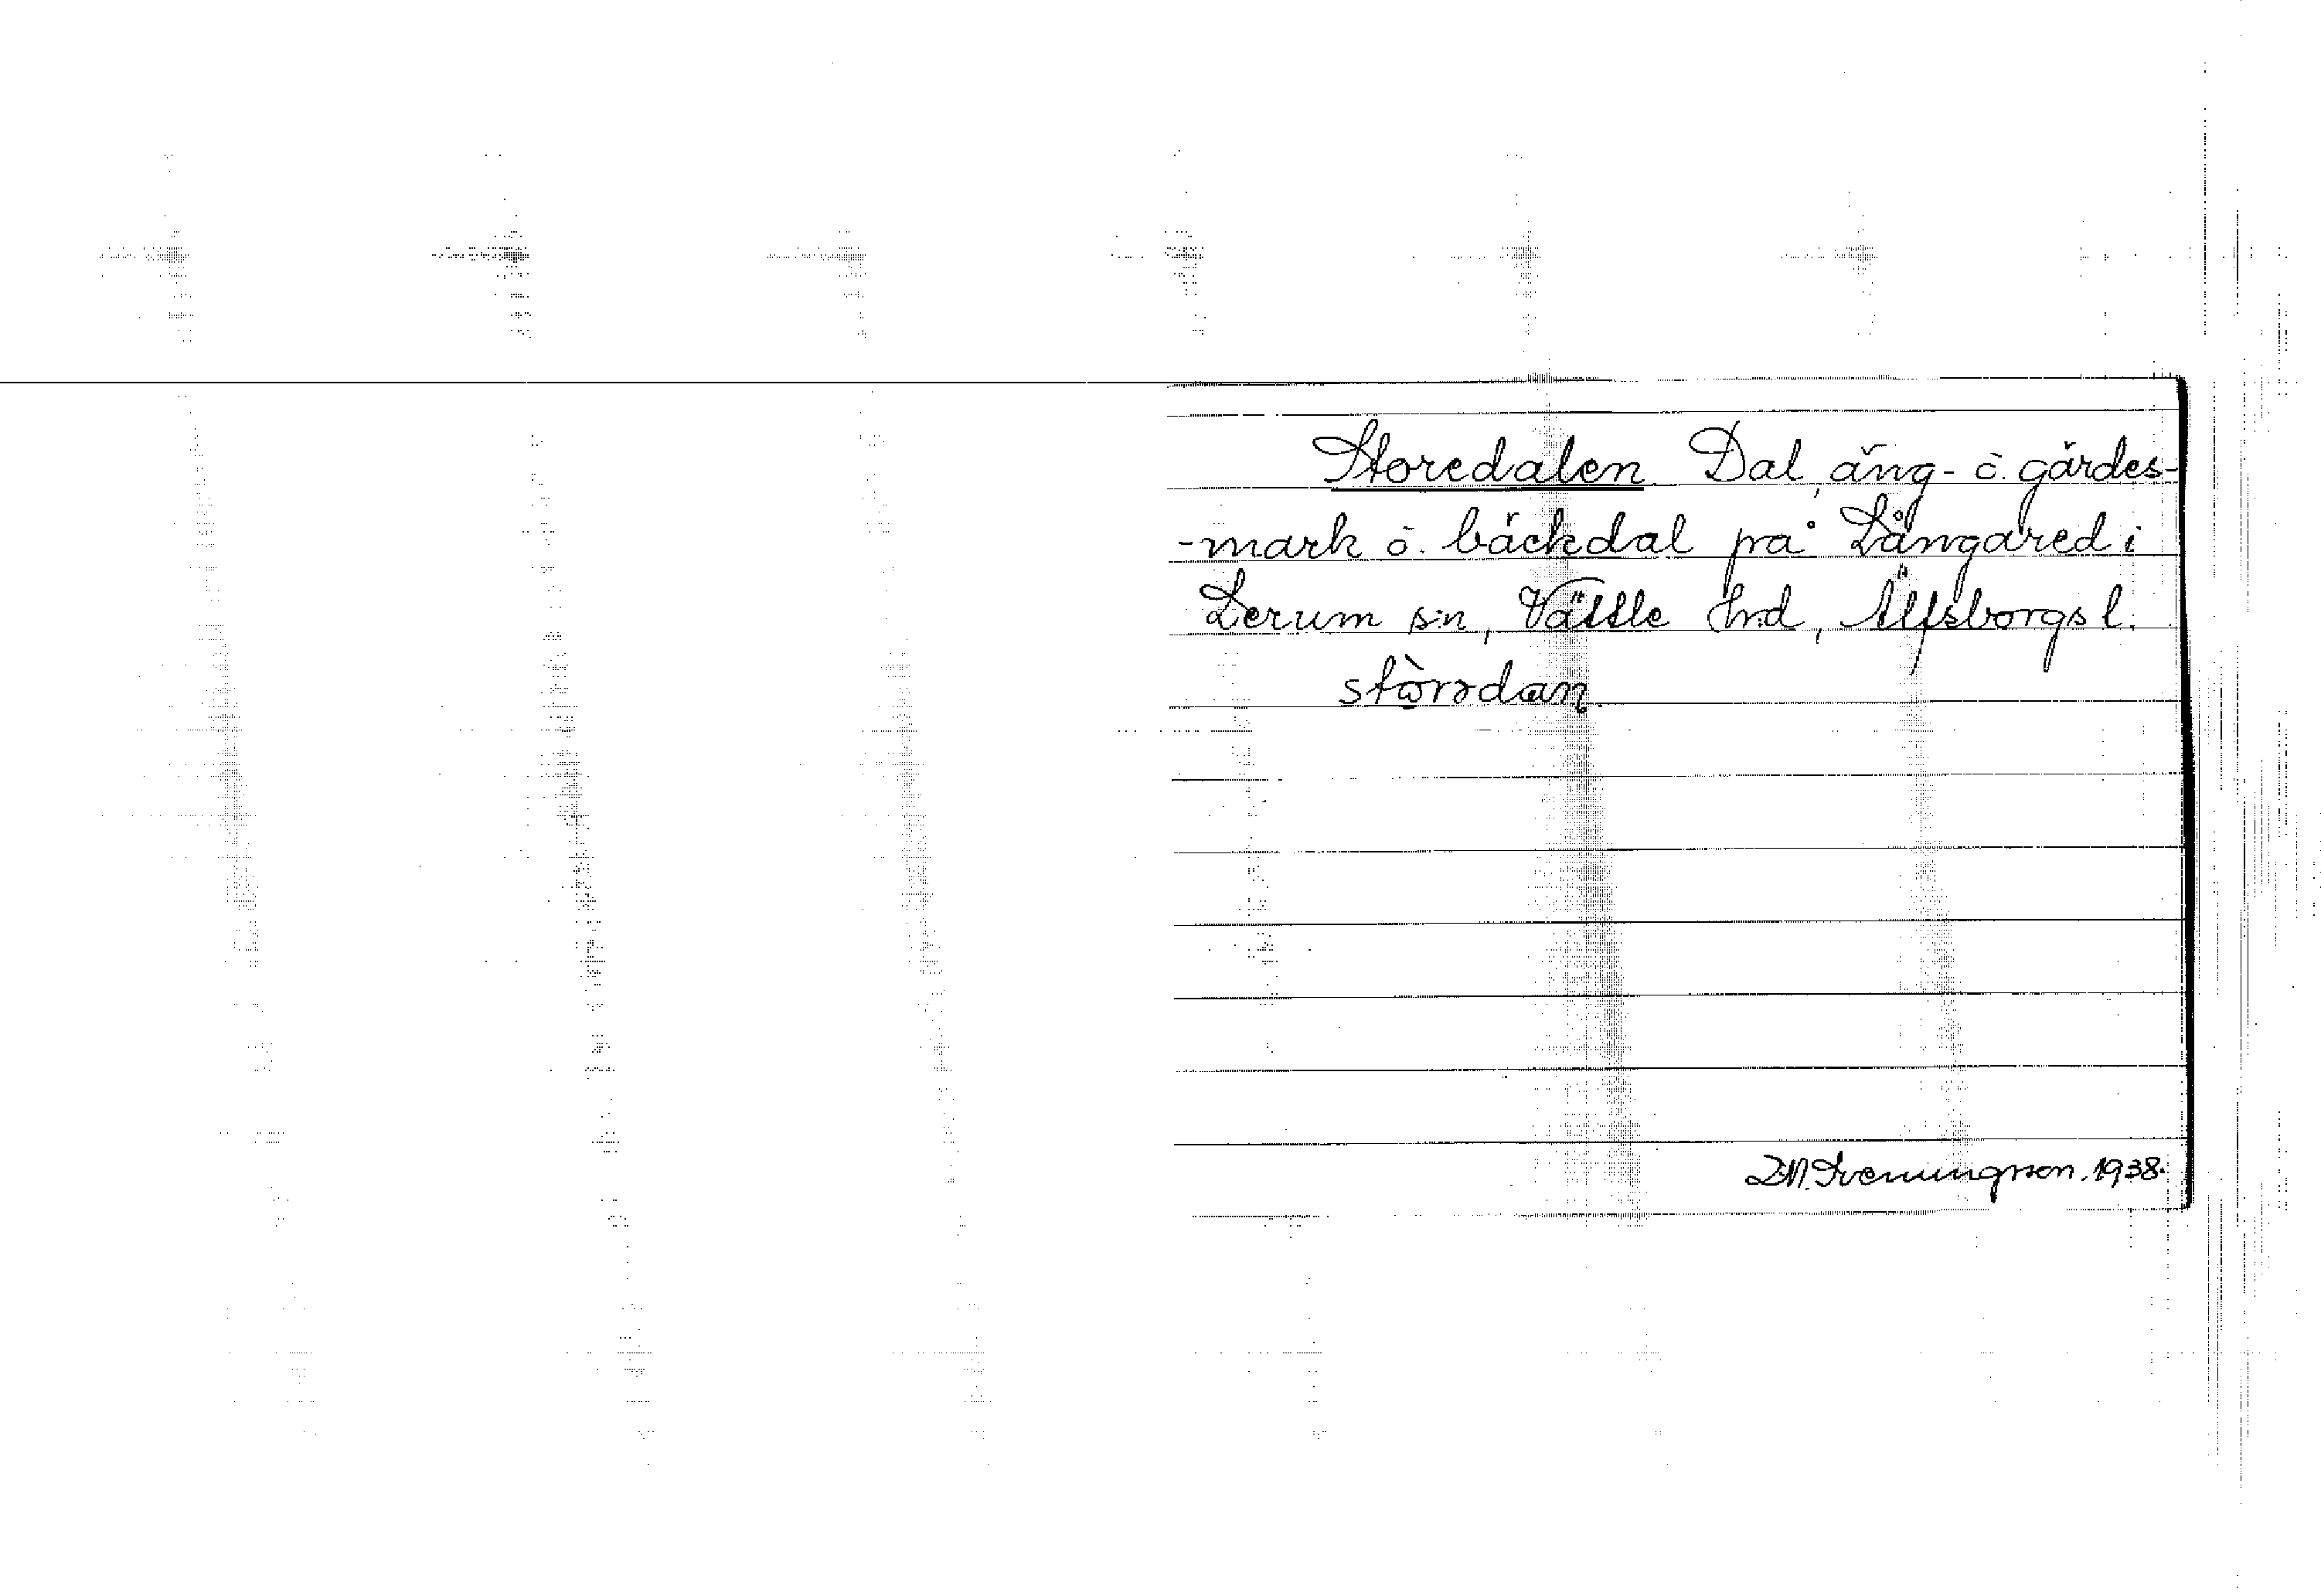 Storedalen. Dal, äng- o. gärdes-
-mark o. bäckdal på Långared i
Lerum sn, Vättle hd, Älfsborgs l.
stòrədan.
D.N. Svenungsson. 1938.